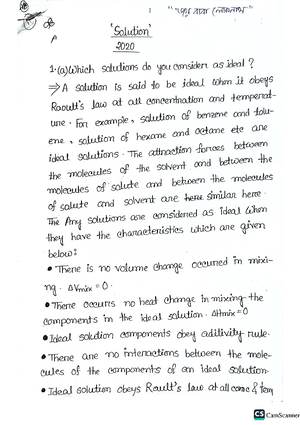 'Solution'
2020
1.(a) Which solutions do you consider as ideal?
⇒ A solution is said to be ideal when it obeys
Raoult's law at all concentration and temperat-
ure. For example, solution of benzene and tolu-
ene, solution of hexane and octane etc are
ideal solutions. The attraction forces between
the molecules of the solvent and between the
molecules of solute and between the molecules
of solute and solvent are here similar here.
The Any solutions are considered as ideal when
they have the characteristics which are given
below:
• There is no volume change occurred in mixi-
ng. ΔVmix = 0.
• There occurs no heat change in mixing the
components in the ideal solution. ΔHmix = 0
• Ideal solution components obey aditivity rule.
• There are no interactions between the mole-
cules of the components of an ideal solution.
• Ideal solution obeys Rault's law at all conc & tem
CS CamScanner